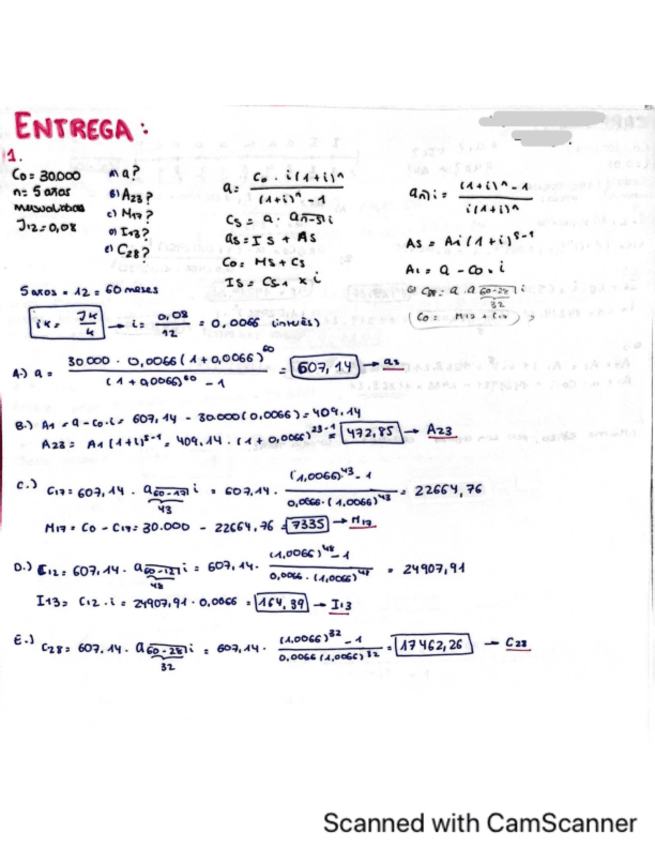 ENTREGA:
1.
C0 = 30.000
n = 5 años
mensualidades
J12 = 0,08
a) a?
b) A23?
c) M17?
d) I13?
e) C28?
a = C0 · i (1+i)^n / (1+i)^n - 1
Cs = a · a n-s| i
as = Is + As
C0 = Ms + Cs
Is = Cs-1 x i
a n| i = (1+i)^n - 1 / i(1+i)^n
As = A1 (1+i)^s-1
A1 = a - C0 · i
C28 = a · a 60-28| i
32
(C0 = M17 + C17)
5 años · 12 = 60 meses
ik = Jk / k → i = 0,08 / 12 = 0,0066 (interés)
A.) a = 30.000 · 0,0066 (1+0,0066)^60 / (1+0,0066)^60 - 1 = 607,14 → as
B.) A1 = a - C0 · i = 607,14 - 30.000(0,0066) = 409,14
A23 = A1 (1+i)^s-1 = 409,14 · (1+0,0066)^23-1 = 472,85 → A23
C.) C17 = 607,14 · a 60-17| i = 607,14 · (1,0066)^43 - 1 / 0,0066 · (1,0066)^43 = 22664,76
43
M17 = C0 - C17 = 30.000 - 22664,76 = 7335 → M17
D.) C12 = 607,14 · a 60-12| i = 607,14 · (1,0066)^48 - 1 / 0,0066 · (1,0066)^48 = 24907,91
48
I13 = C12 · i = 24907,91 · 0,0066 = 164,39 → I13
E.) C28 = 607,14 · a 60-28| i = 607,14 · (1,0066)^32 - 1 / 0,0066 (1,0066)^32 = 17462,26 → C28
32
Scanned with CamScanner